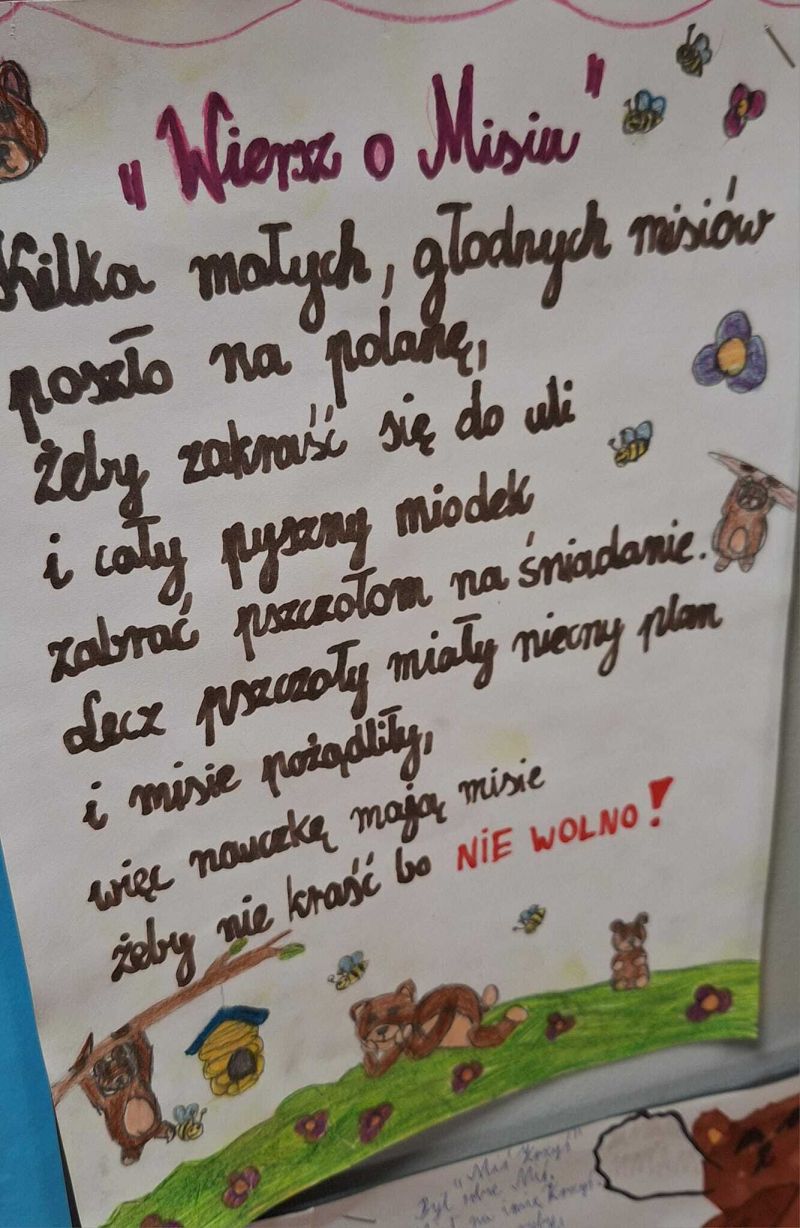 "Wiersz o Misiu"
Kilka małych, głodnych misiów
poszło na polanę,
żeby zakraść się do uli
i cały pyszny miodek
zabrać pszczołom na śniadanie.
Lecz pszczoły miały niecny plan
i misie pożądliły,
więc nauczkę mają misie
żeby nie kraść bo NIE WOLNO!
"Maś Korys"
Był sobie Miś.
na imię